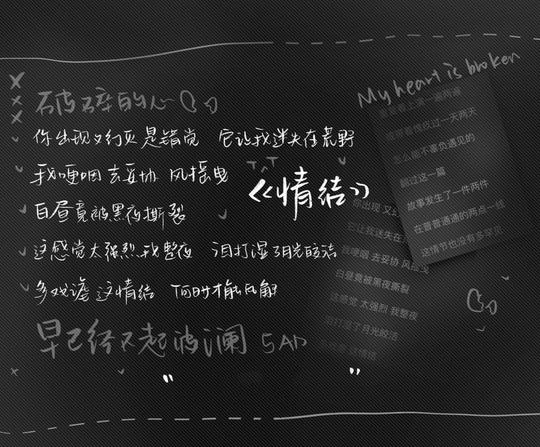 My heart is broken
破碎的心
你出现又幻灭是错觉 它让我迷失在荒野
我哽咽去妥协 风摇曳
白昼竟被黑夜撕裂
这感觉太强烈我整夜 泪打湿了月光皎洁
多戏谑这情结 何时才能瓦解
早已经不起波澜 SAD
《情结》
重复着上演一遍两遍
或带着愧疚过一天两天
怎么能不辜负遇见的
翻过这一篇
故事发生了一件两件
在普普通通的两点一线
这情节也没有多罕见
你出现 又幻
它让我迷失在
我哽咽 去妥协 风摇曳
白昼竟被黑夜撕裂
这感觉 太强烈 我整夜
泪打湿了月光皎洁
多戏谑 这情结